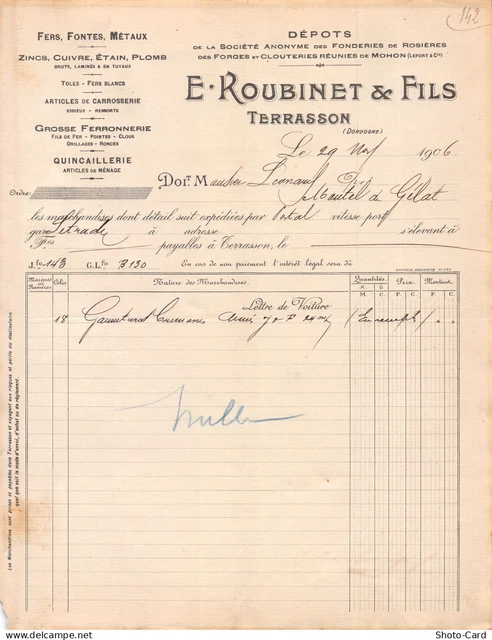 142
FERS, FONTES, MÉTAUX
ZINCS, CUIVRE, ÉTAIN, PLOMB
BRUTS, LAMINÉS & EN TUYAUX
TOLES - FERS BLANCS
ARTICLES DE CARROSSERIE
ESSIEUX - RESSORTS
GROSSE FERRONNERIE
FILS DE FER - POINTES - CLOUS
GRILLAGES - RONCES
QUINCAILLERIE
ARTICLES DE MÉNAGE
DÉPOTS
DE LA SOCIÉTÉ ANONYME DES FONDERIES DE ROSIÈRES
DES FORGES ET CLOUTERIES RÉUNIES DE MOHON (LEFORT & Cie)
E. ROUBINET & FILS
TERRASSON
(DORDOGNE)
Le 29 1906.
Ordre:
Doit M Léonard
de Gélat
les marchandises dont détail suit expédiées par Postal vitesse port
gare à adresse s'élevant à
Frs payables à Terrasson, le
J. fo 143 G. L. fo B 130 En cas de non paiement l'intérêt légal sera dû
Marques ou Numéros Colis Nature des Marchandises. Quantités. Prix. Montant.
K. G.
M. C. F. C. F. C.
Lettre de Voiture
18
nulle
Les Marchandises sont prises et payables dans Terrasson et voyagent aux risques et périls du destinataire
quel que soit le mode d'envoi, d'achat ou de règlement.
www.delcampe.net
Shoto-Card